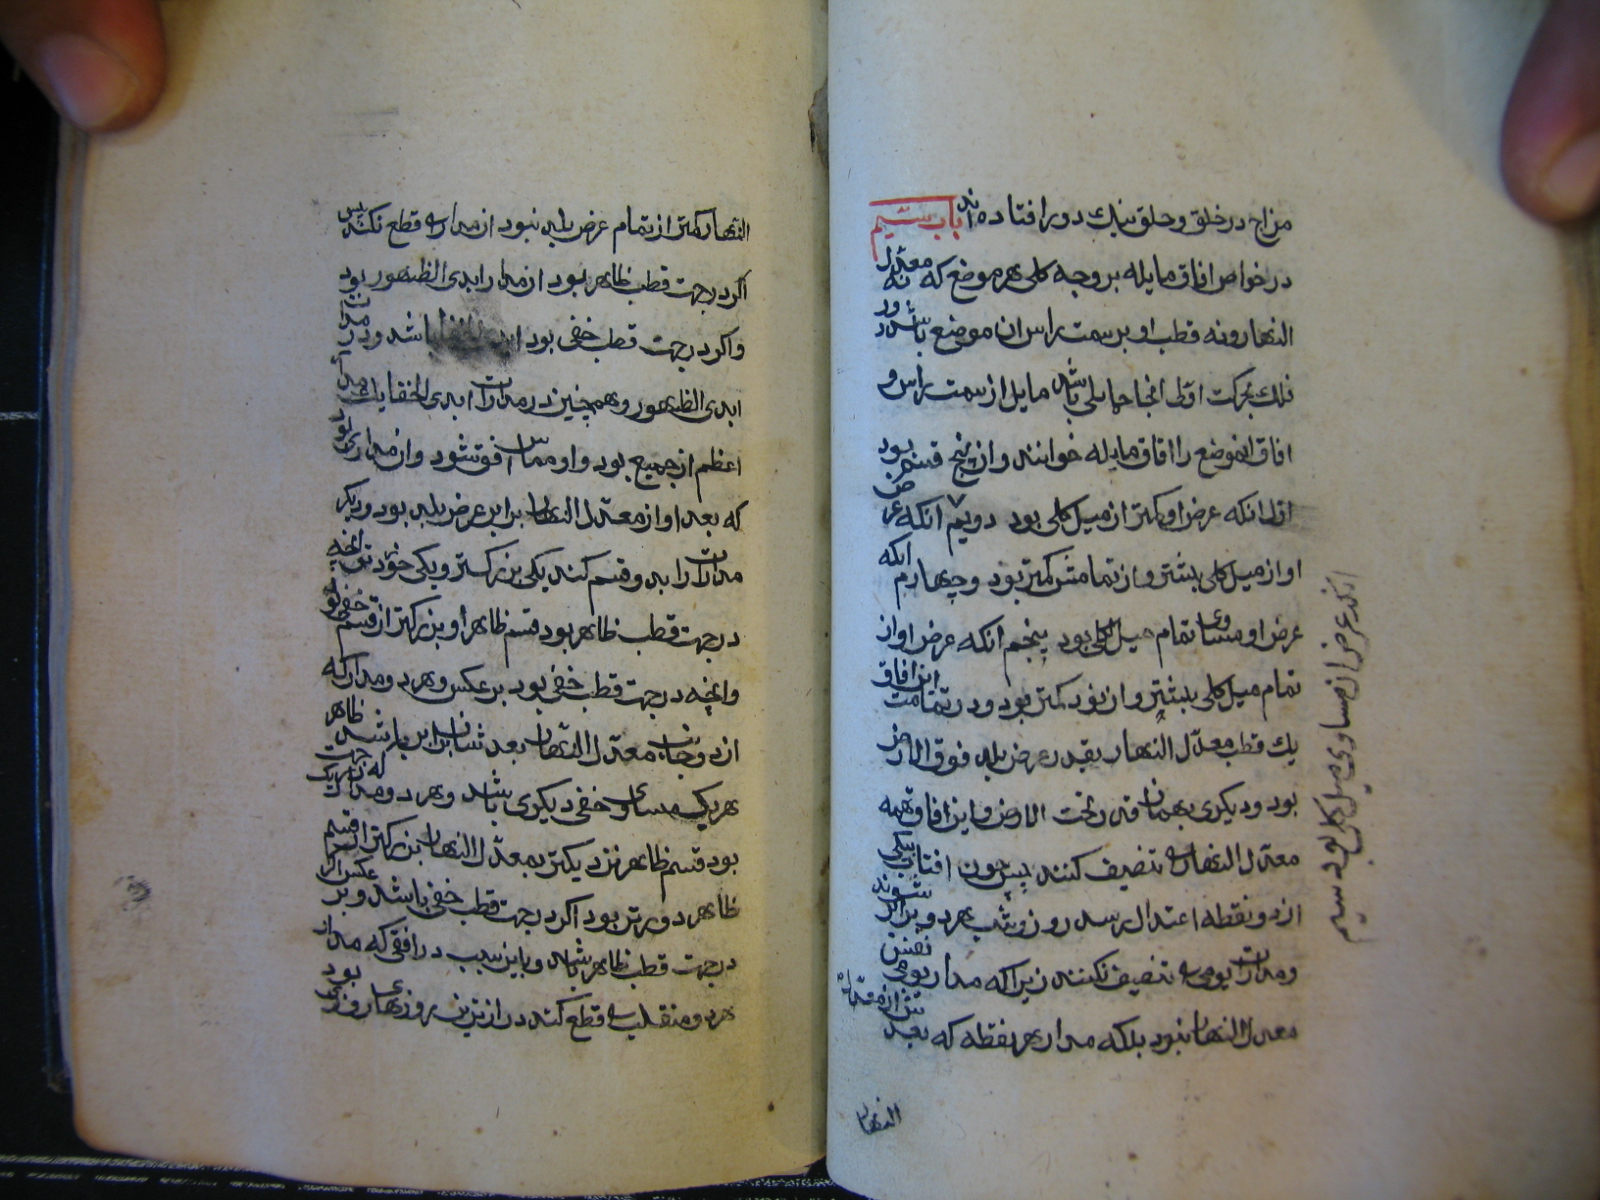 مزاج در خلق و خلق نیك دور افتاده اند باب سیم
در خواص افاق مایله بر وجه کلی هر موضع که نه معدل
النهار و نه قطب او بر سمت راس ان موضع باشد دور
فلك بحرکت اولی انجا حمایلی باشد مایل از سمت راس و
افاق انموضع را افاق مایله خوانند و ان پنج قسم بود
اول انکه عرض او کمتر از میل کلی بود دویم انکه عرض
او از میل کلی بیشتر و از تمامش کمتر بود و چهارم انکه
عرض او مساوی تمام میل کلی بود پنجم انکه عرض او از
تمام میل کلی بیشتر و از نود کمتر بود و در تمامت این افاق
یك قطب معدل النهار بقدر عرض بلد فوق الارض
بود و دیکری بهمان قدر تحت الارض و این افاق همه
معدل النهار را تنصیف کنند پس چون افتاب بیکی
از دو نقطه اعتدال رسد روز و شب هر دو برابر شوند
و مدارات یومی را تنصیف نکنند زیرا که مدار یومی نفس
معدل النهار نبود بلکه مدار هر نقطه که بعدش از معدل
النهار
انکه عرض او مساوی میل کلی بود سیم
النهار کمتر از تمام عرض بلد نبود از مدار را قطع نکند پس
اکر در جهت قطب ظاهر بود ان مدار ابدی الظهور بود
و اکر در جهت قطب خفی بود باشد و در مدارات
ابدی الظهور و هم چنین در مدارات ابدی الخفا یك مدار
اعظم از جمیع بود و او مماس افق شود و ان مداری بود
که بعد او از معدل النهار برابر عرض بلد بود و دیکر
مدارات را بدو قسم کند یکی بزرکتر و یکی خوردتر انچه
در جهت قطب ظاهر بود قسم ظاهر او بزرکتر از قسم خفی بود
و انچه در جهت قطب خفی بود بر عکس و هر دو مدار که
از دو جانب معدل النهار بعدشان برابر باشد ظاهر
هر یك مساوی خفی دیکری باشد و هر دو مدار که در یك جهت
بود قسم ظاهر نزدیکتر بمعدل النهار بزرکتر از قسم
ظاهر دورتر بود اکر در جهت قطب خفی باشد و بر عکس اکر
در جهت قطب ظاهر باشد و باین سبب در افقی که مدار
هر دو منقلب را قطع کند درازترین روزهای روزی بود